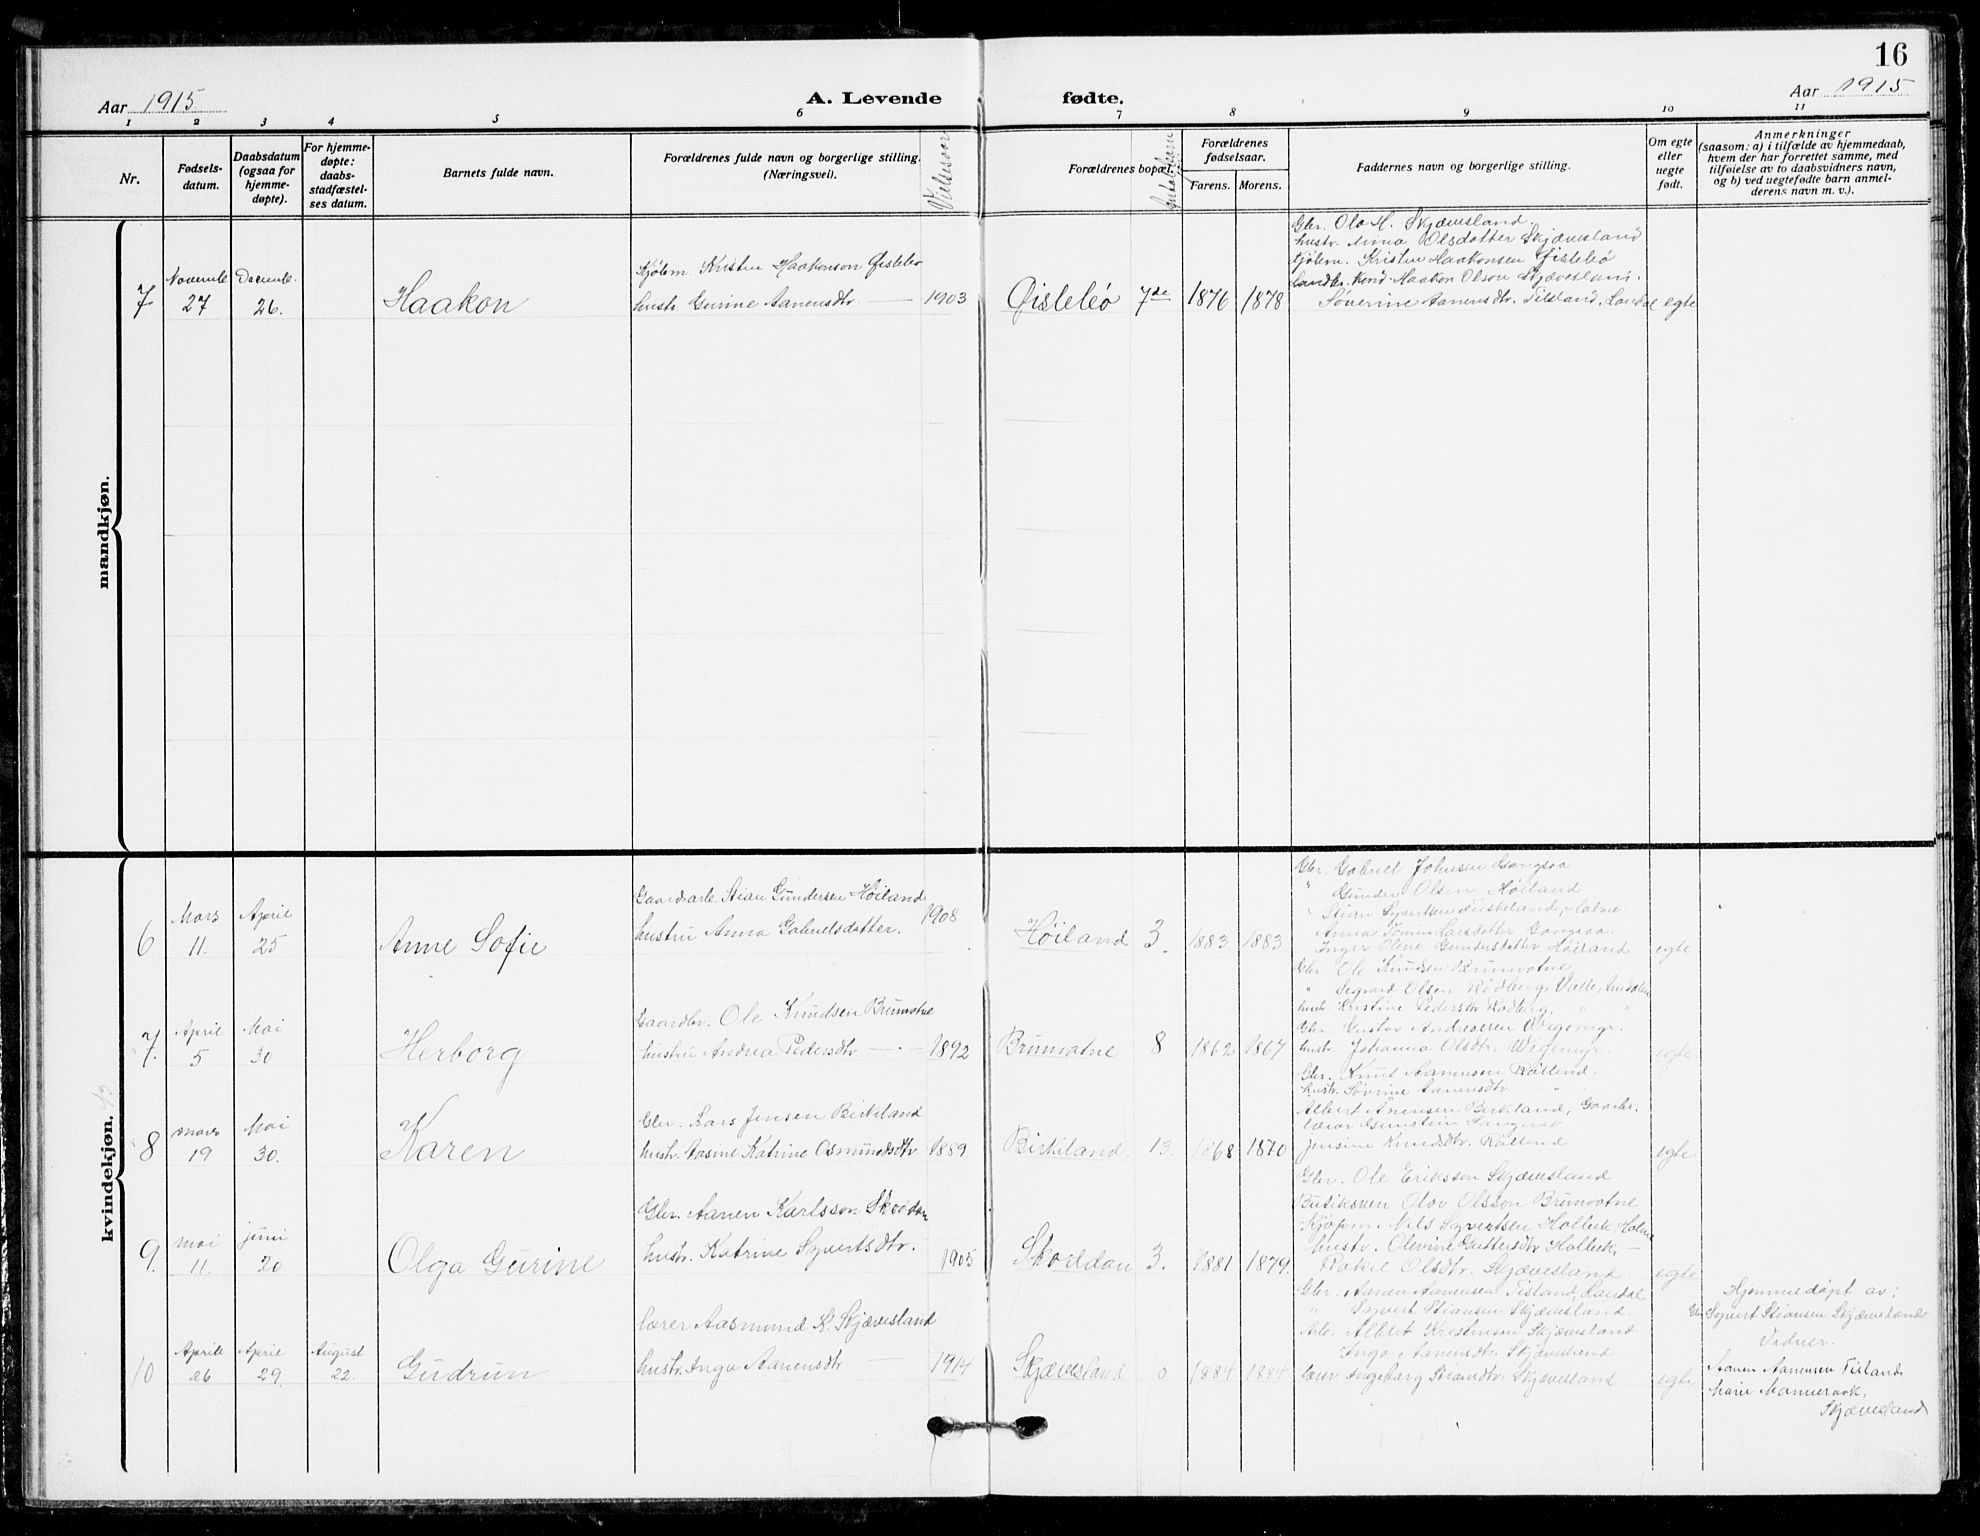 16
Aar 1915
A. Levende fødte.
Aar 1915
1 2 3 4 5 6 7 8 9 10 11
Nr.
Fødsels-
datum.
Daabsdatum
(ogsaa for
hjemme-
døpte).
For hjemme-
døpte:
daabs-
stadfæstel-
ses datum.
Barnets fulde navn.
Forældrenes fulde navn og borgerlige stilling.
(Næringsvei).
Vielsesaar
Forældrenes bopæl.
Forældrenes
fødselsaar.
Farens. Morens.
Faddernes navn og borgerlige stilling.
Om egte
eller
uegte
født.
Anmerkninger
(saasom: a) i tilfælde av hjemmedaab,
hvem der har forrettet samme, med
tilføielse av to daabsvidners navn,
og b) ved uegtefødte barn anmel-
derens navn m. v.).
mandkjøn.
7
Novembe
27
Decembe.
26.
Haakon
Kjølem. Kristen Haakonson Øislebø
hustr. Gurine Aanensdtr. — 1903
Øislebø 7de 1876 1878
Gbr. Olo H. Skjævesland.
hustr. Mina Olsdotter Skjævesland
Kjølem. Kristen Haakonsen Øislebø
Haakon Olson Skjævesland.
Søverine Aanensdtr. Tisland, Laudal
egte
kvindekjøn.
6
Mars
11.
April
25
Anne Sofie
Gaardarb. Stian Gundersen Høiland
hustru Anna Gabrielsdatter.
1908
Høiland 3. 1883 1883
Gbr. Gabriel Johnsen
" Gunder Olsen Høiland
" Stian Syvertsen Fuskeland, Holme
Anna Larsdotter
Inger Olene Gundersdotter Høiland
egte
7.
April
5
Mai
30
Herborg
Gaardbr. Ole Knudsen Brunvatne
hustru Andrea Pedersdtr — 1892
Brunvatne 8 1862 1867
Gbr Ole Knudsen Brunvatne
" Olsen Rødberg, Valle,
hust Kristine Pedersdtr Rødberg, " "
Gbr. Gustav Andreassen Wigemyr.
hust. Johanna Olsdtr. Wigemyr.
egte
8
Mars
19
Mai
30.
Karen
Gbr. Lars Jensen Birkeland
hustr. Tasine Katrine Osmundsdtr. 1889.
Birkeland. 13. 1868 1870
Gbr. Knut Aanensen Røiland.
hustr. Søvrine Aanensdtr
Albert Anensen Birkeland, Gaarbr.
Lærer Gunstein
Jensine Knudsdtr.
egte
9.
Mai
11.
Juni
20
Olga Gurine
Gbr. Aanen Karlsson Skoddan
hustr. Katrine Syvertsdtr. 1905
Skoddan 3. 1881 1879.
Gbr. Ole Eriksson Skjævesland
Olav Olsson Brunvatne
Kjøpm. Nils Syvertsen Holbek, Holme
hustr. Olevine Guttersdtr Holbek, —
Rakel Olsdtr. Skjævesland
egte
10
April
26
April
29.
August
22.
Gudrun
Lærer Aasmund K. Skjævesland
hustr. Inga Aanensdtr — 1914
Skjævesland 0 1884 1884
Gbr. Aanen Aanensen Tisland, Laudal
" Syvert Stiansen Skjævesland.
Arb. Albert Kristensen Skjævesland.
Inga Aanensdtr. Skjævesland
Lærer Ingeborg Stiansdtr. Skjævesland
egte
Hjemmedøpt av:
Gbr Syvert Stiansen Skjævesland
Vidner.
Aanen Aanensen Tisland
Marie Mannevak,
Skjævesland